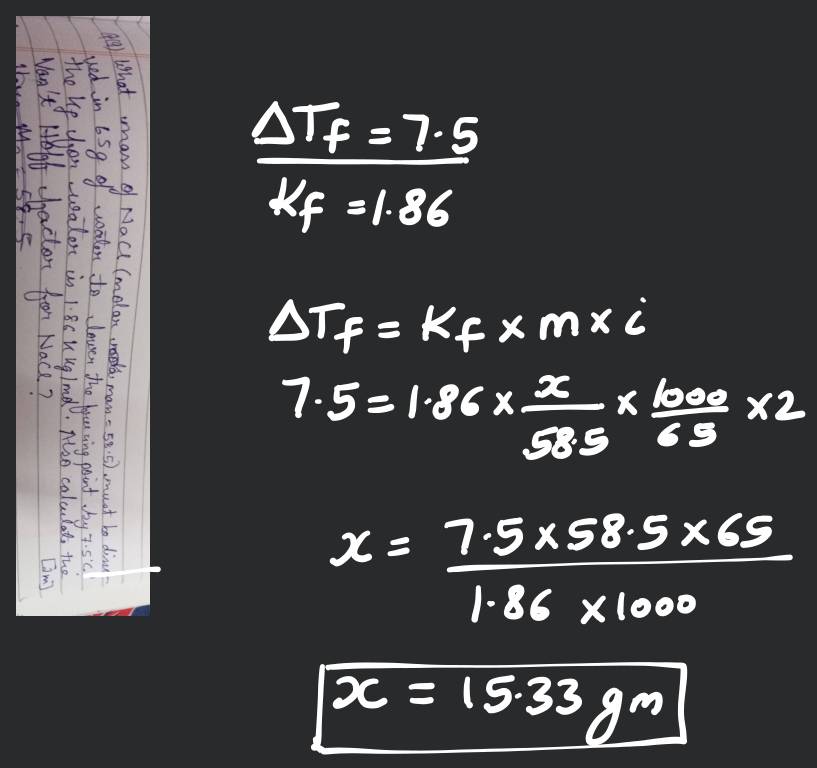 Q19) What mass of NaCl (molar mass = 58.5) must be disso-
ved in 65g of water to lower the freezing point by 7.5°C.
The Kf for water is 1.86 K kg/mol. Also calculate the
Van't Hoff factor for NaCl? [2m]
= 58.5
ΔTf = 7.5
Kf = 1.86
ΔTf = Kf × m × i
7.5 = 1.86 × x/58.5 × 1000/65 × 2
x = 7.5 × 58.5 × 65
1.86 × 1000
x = 15.33 gm